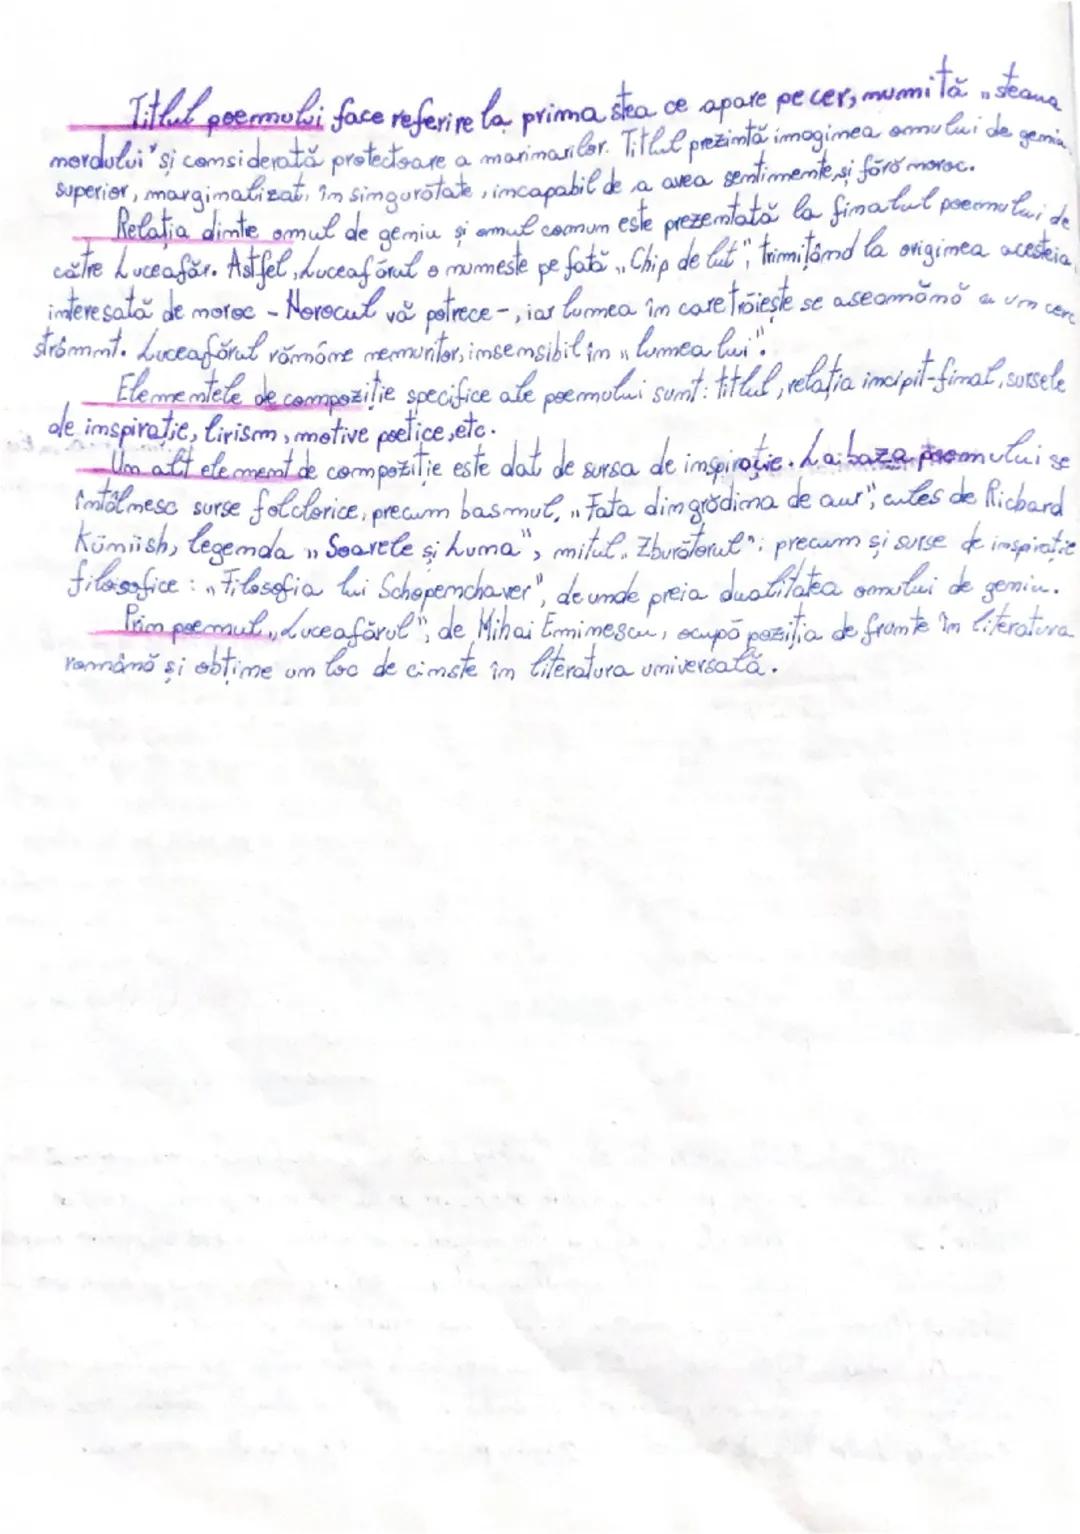 Titlul poemului face referire la prima stea ce apare pe cer, numită „steaua
nordului" și considerată protectoare a marinarilor. Titlul prezintă imaginea omului de geniu
superior, marginalizat, în singurătate, incapabil de a avea sentimente și fără noroc.
Relația dintre omul de geniu și omul comun este prezentată la finalul poemului de
către Luceafăr. Astfel, Luceafărul o numește pe fată „Chip de lut", trimițând la originea acesteia,
interesată de noroc - Norocul vă petrece -, iar lumea în care trăiește se aseamănă cu un cerc
strâmt. Luceafărul rămâne nemuritor, insensibil în „lumea lui".
Elementele de compoziție specifice ale poemului sunt: titlul, relația incipit-final, sursele
de inspirație, lirism, motive poetice, etc.
Un alt element de compoziție este dat de sursa de inspirație. La baza poemului se
întâlnesc surse folclorice, precum basmul, „Fata din grădina de aur", cules de Richard
Künish, legenda „Soarele și Luna", mitul „Zburătorul"; precum și surse de inspirație
filosofice: „Filosofia lui Schopenchaver", de unde preia dualitatea omului de geniu.
Prin poemul „Luceafărul", de Mihai Eminescu, ocupă poziția de frunte în literatura
română și obține un loc de cinste în literatura universală.